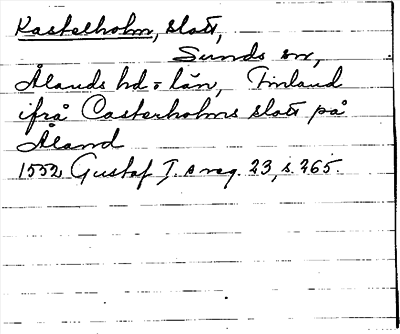 Kastelholm, slott,
Sunds sn,
Ålands hd o län, Finland
ifrå Casterholms slott på
Åland
1552 Gustaf I. s reg. 23, s. 265.